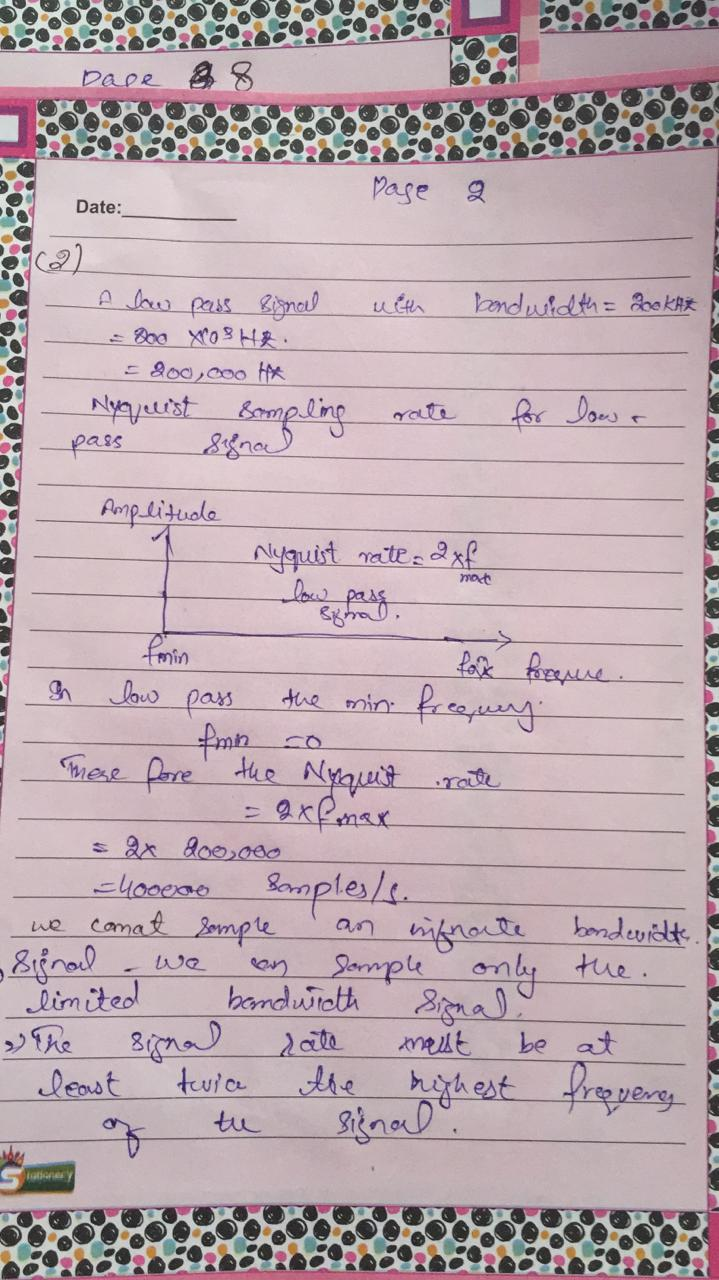 Page 8
Page 2
Date:
(2)
A low pass signal with bandwidth = 200kHz
= 200 x10³ Hz.
= 200,000 Hz
Nyquist sampling rate for low -
pass signal
Amplitude
Nyquist rate = 2xf
max
low pass
signal.
fmin
frequre.
In low pass the min. freequery.
fmn =0
These fore the Nyquist rate
= 2xfmax
= 2x 200,000
=400000 Samples/s.
we cannat sample an infinate bandwidth.
Signal - we can sample only the.
limited bandwidth signal.
The signal rate must be at
least twice the highest frequency
of the signal.
Stationery